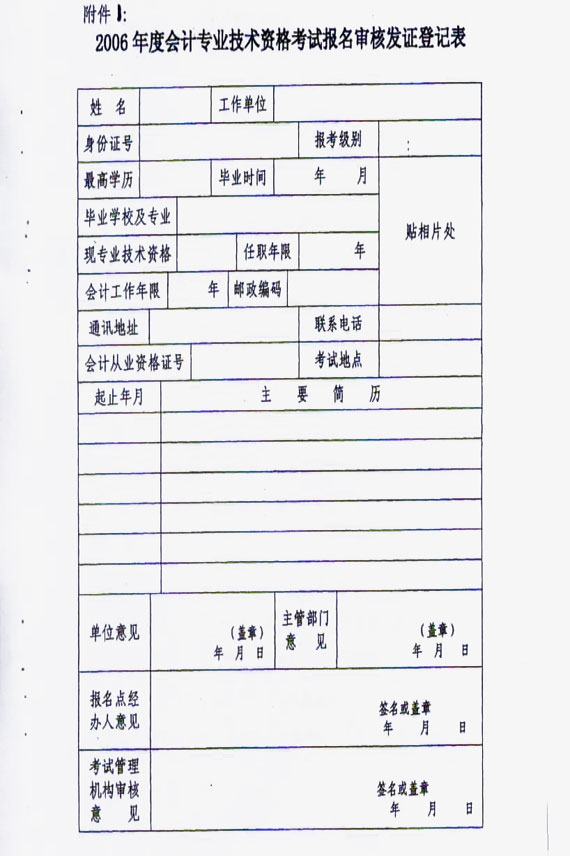 附件1:
2006年度会计专业技术资格考试报名审核发证登记表
姓 名 工作单位
身份证号 报考级别
最高学历 毕业时间 年 月
毕业学校及专业 贴相片处
现专业技术资格 任职年限 年
会计工作年限 年 邮政编码
通讯地址 联系电话
会计从业资格证号 考试地点
起止年月 主 要 简 历
单位意见 (盖章) 年 月 日 主管部门 意 见 (盖章) 年 月 日
报名点经
办人意见 签名或盖章
年 月 日
考试管理
机构审核
意 见 签名或盖章
年 月 日